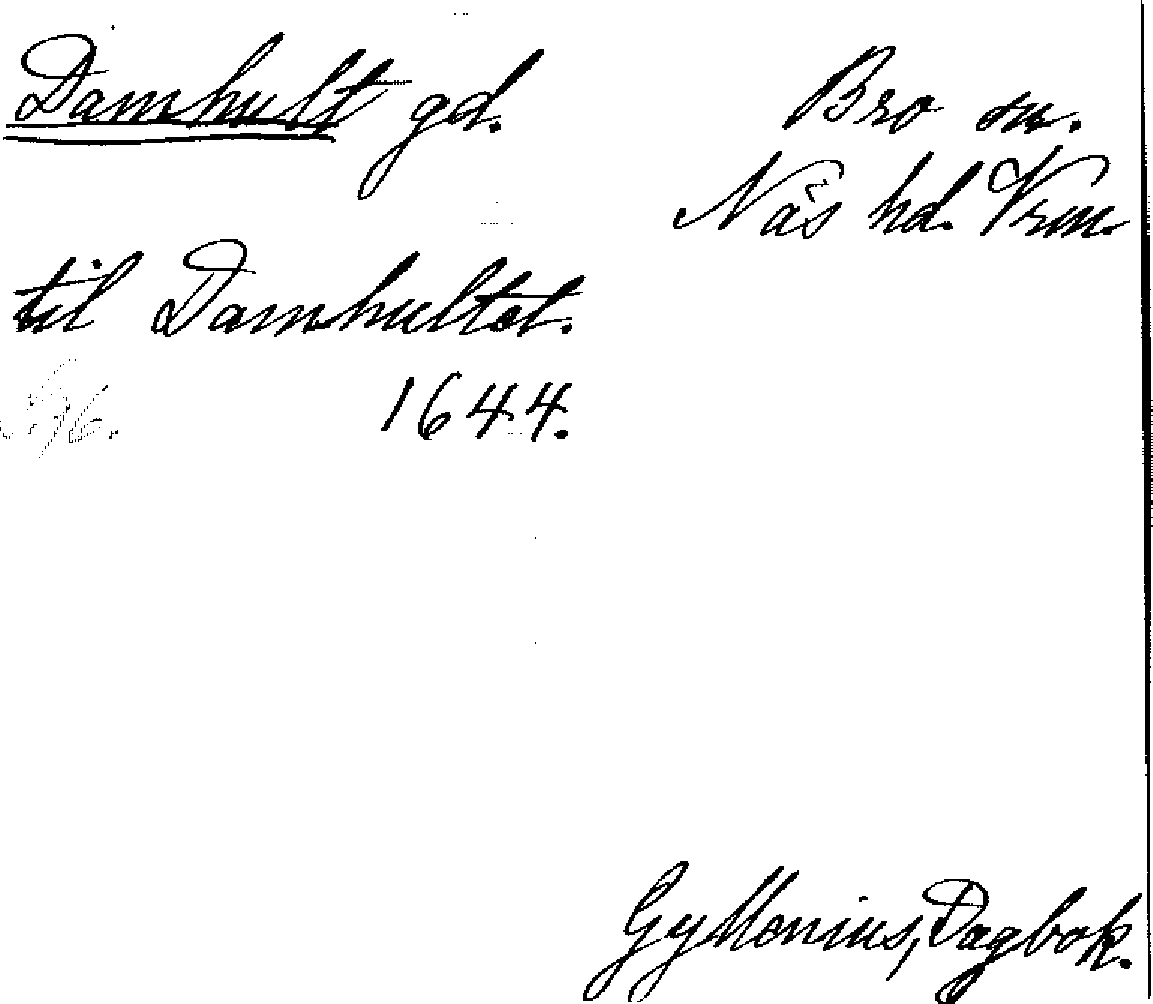 Damhult gd.
Bro sn.
Näs hd. Vrm.
til Damhultet.
1644.
Gyllenius, Dagbok.